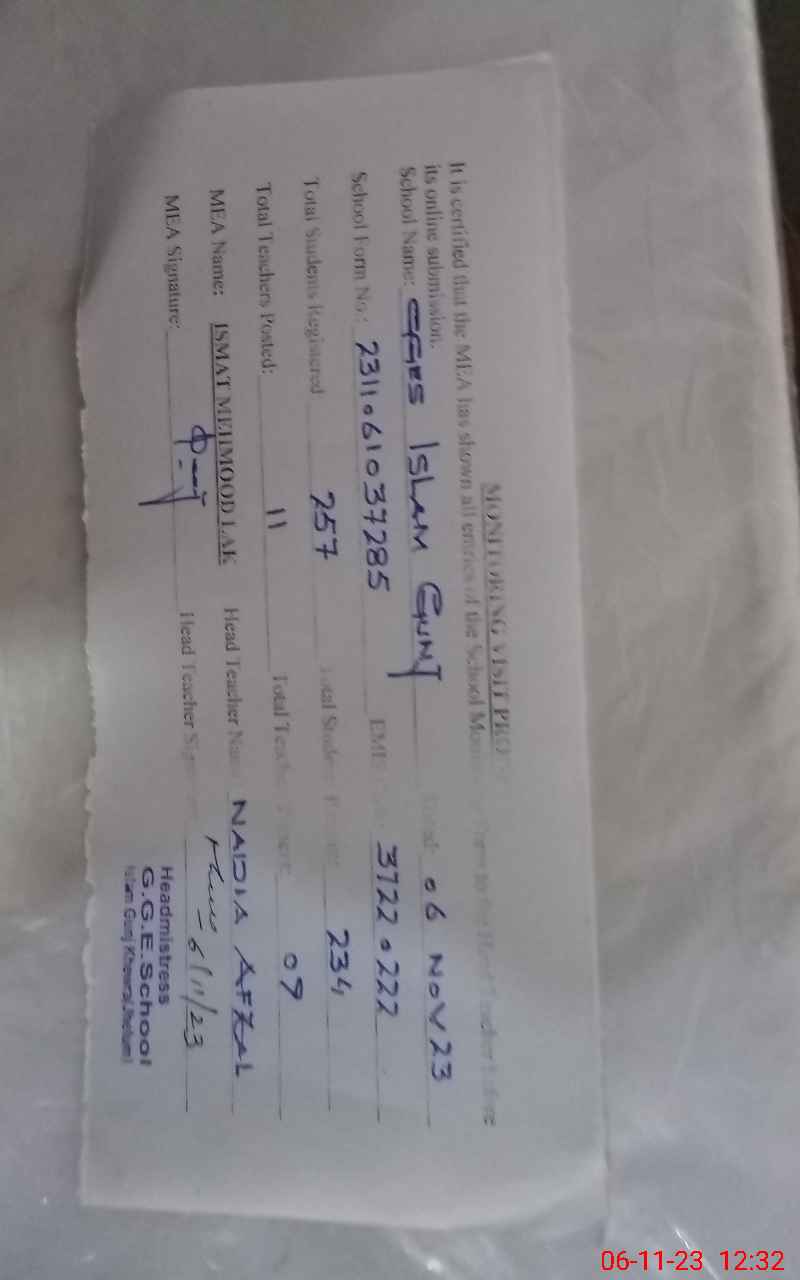 MONITORING VISIT
It is certified that the MEA has shown all entries of the School to the Head Teacher before
its online submission.
School Name: GGES ISLAM GUNJ 06 NOV 23
School Form No.: 2311061037285 EMIS 37220222
Total Students Registered 257 Total Student 234
Total Teachers Posted: 11 Total 09
MEA Name: ISMAT MEHMOOD LAK Head Teacher Name NADIA AFZAL
MEA Signature: Head Teacher 6/11/23
Headmistress
G.G.E.School
Islam Gunj Khewra(Jhelum)
06-11-23 12:32